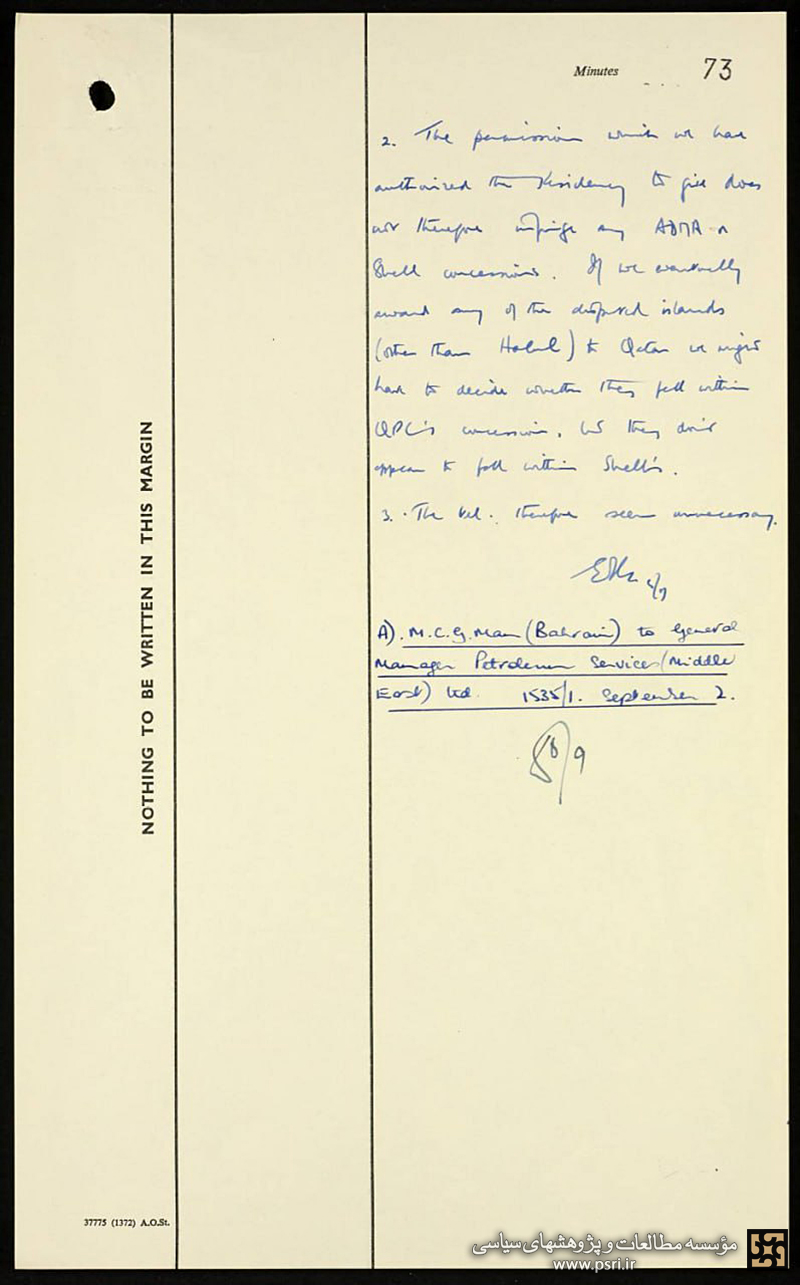 Minutes
73
2. The permission which we have
authorized the Residency to give does
not therefore infringe any ADMA or
Shell concessions. If we eventually
award any of the disputed islands
(other than Halul) to Qatar we might
have to decide whether they fell within
QPC's concession, but they don't
appear to fall within Shell's.
3. The tel. therefore seems unnecessary.
A). M.C.G. Man (Bahrain) to General
Manager Petroleum Services (Middle
East) Ltd. 1535/1. September 2.
9
NOTHING TO BE WRITTEN IN THIS MARGIN
37775 (1372) A.O.St.
مؤسسه مطالعات و پژوهشهای سیاسی
www.psri.ir